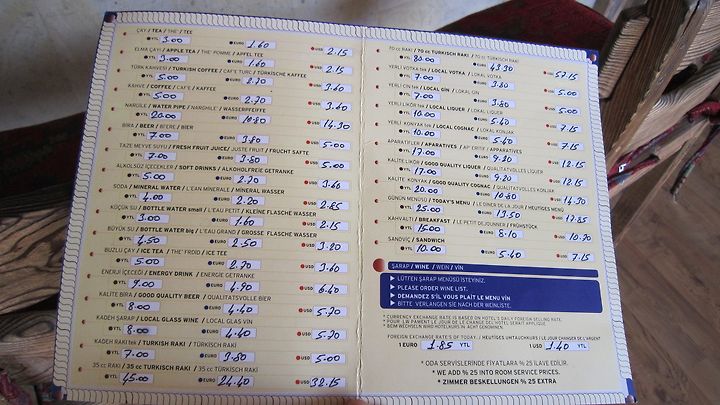 ÇAY / TEA / THE' / TEE
YTL 3.00 EURO 1.60 USD 2.15
ELMA ÇAYI / APPLE TEA / THE' POMME / APFEL TEE
YTL 3.00 EURO 1.60 USD 2.15
TÜRK KAHVESİ / TURKISH COFFEE / CAF'E TURC / TÜRKISCHE KAFFEE
YTL 5.00 EURO 2.70 USD 3.60
KAHVE / COFFEE / CAF'E / KAFFEE
YTL 5.00 EURO 2.70 USD 3.60
NARGİLE / WATER PIPE / NARGHILE' / WASSERPFEIFFE
YTL 20.00 EURO 10.80 USD 14.30
BİRA / BEER / BIERE / BIER
YTL 7.00 EURO 3.80 USD 5.00
TAZE MEYVE SUYU / FRESH FRUIT JUICE / JUSTE FRUIT / FRUCHT SAFTE
YTL 7.00 EURO 3.80 USD 5.00
ALKOLSÜZ İÇECEKLER / SOFT DRINKS / ALKOHOLFREIE GETRANKE
YTL 5.00 EURO 2.70 USD 3.60
SODA / MINERAL WATER / L'EAU MINERALE / MINERAL WASSER
YTL 4.00 EURO 2.20 USD 2.85
KÜÇÜK SU / BOTTLE WATER small / L'EAU PETIT / KLEINE FLASCHE WASSER
YTL 3.00 EURO 1.60 USD 2.15
BÜYÜK SU / BOTTLE WATER big / L'EAU GRAND / GROSSE FLASCHE WASSER
YTL 4.50 EURO 2.50 USD 3.20
BUZLU ÇAY / ICE TEA / THE' FRDID / ICE TEE
YTL 5.00 EURO 2.70 USD 3.60
ENERJİ İÇECEĞİ / ENERGY DRINK / ENERGIE GETRANKE
YTL 9.00 EURO 4.90 USD 6.40
KALİTE BİRA / GOOD QUALITY BEER / QUALITATSVOLLE BIER
YTL 8.00 EURO 4.40 USD 5.70
KADEH ŞARAP / LOCAL GLASS WINE / LOCAL GLAS VIN
YTL 8.00 EURO 4.40 USD 5.70
KADEH RAKI TEK / TURKISH RAKI / TÜRKISCH RAKI
YTL 7.00 EURO 3.80 USD 5.00
35 cc RAKI / 35 cc TURKISH RAKI / 35 CC TÜRKISCH RAKI
YTL 45.00 EURO 24.40 USD 32.15
70 cc RAKI / 70 cc TURKISH RAKI / 70 cc TÜRKISCH RAKI
YTL 80.00 EURO 43.30 USD 57.15
YERLİ VOTKA / LOCAL VOTKA / LOKAL VOTKA
YTL 7.00 EURO 3.80 USD 5.00
YERLİ CİN tek / LOCAL GIN / LOKAL GIN
YTL 7.00 EURO 3.80 USD 5.00
YERLİ LİKÖR tek / LOCAL LIQUER / LOKAL LIQUER
YTL 10.00 EURO 5.40 USD 7.15
YERLİ KONYAK tek / LOCAL COGNAC / LOKAL KONJAK
YTL 10.00 EURO 5.40 USD 7.15
APARATİFLER / APARATIVES / AP'ERITIF / APPARATIVES
YTL 17.00 EURO 9.20 USD 12.15
KALİTE LİKÖR / GOOD QUALITY LIQUER / QUALITATSVOLLES LIQUER
YTL 17.00 EURO 9.20 USD 12.15
KALİTE KONYAK / GOOD QUALITY COGNAC / QUALITATVOLLEN KONJAK
YTL 20.00 EURO 10.80 USD 14.30
GÜNÜN MENÜSÜ / TODAY'S MENU / LE DINER DE LA JOUR / MEUTIGES MENU
YTL 25.00 EURO 13.50 USD 17.85
KAHVALTI / BREAKFAST / LE PETIT DEJOUNNER / FRÜHSTÜCK
YTL 15.00 EURO 8.10 USD 10.70
SANDVİÇ / SANDWICH
YTL 10.00 EURO 5.40 USD 7.15
ŞARAP / WINE / WEIN / VİN
LÜTFEN ŞARAP MENÜSÜ İSTEYİNİZ.
PLEASE ORDER WINE LIST.
DEMANDEZ S'İL VOUS PLAİT LE MENU VİN
BITTE VERLANGEN SIE NACH DER WEINLISTE.
* CURRENCY EXCHANGE RATE IS BASED ON HOTEL'S DAILY FOREIGN SELLING RATE.
FOREIGN EXCHANGE RATES OF TODAY / HEUTIGES UMTAUCHKURS / LE JOUR CHANGER DE L'ARGENT
1 EURO 1.85 YTL 1 USD 1.40 YTL
* ODA SERVİSLERİNDE FİYATLARA % 25 İLAVE EDİLİR.
* WE ADD % 25 INTO ROOM SERVICE PRICES.
* ZIMMER BESKELLUNGEN % 25 EXTRA